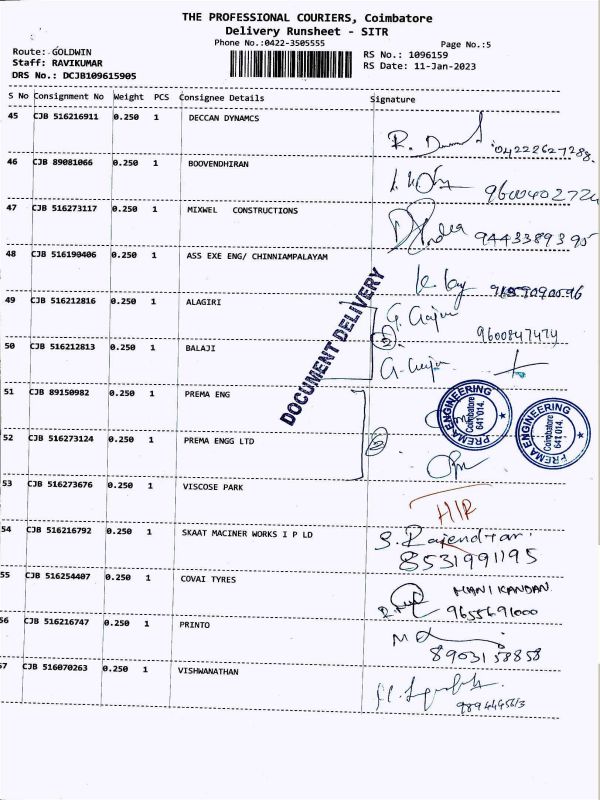 THE PROFESSIONAL COURIERS, Coimbatore
Delivery Runsheet - SITR
Phone No.:0422-3505555
Page No.:5
Route: GOLDWIN
Staff: RAVIKUMAR
DRS No.: DCJB109615905
RS No.: 1096159
RS Date: 11-Jan-2023
S No Consignment No Weight PCS Consignee Details Signature
45 CJB 516216911 0.250 1 DECCAN DYNAMCS
04222627288
46 CJB 89081066 0.250 1 BOOVENDHIRAN
9600402724
47 CJB 516273117 0.250 1 MIXWEL CONSTRUCTIONS
9443389395
48 CJB 516190406 0.250 1 ASS EXE ENG/ CHINNIAMPALAYAM
49 CJB 516212816 0.250 1 ALAGIRI
9600847474
50 CJB 516212813 0.250 1 BALAJI
2
DOCUMENT DELIVERY
51 CJB 89150982 0.250 1 PREMA ENG
PREMA ENGINEERING
Coimbatore
641 014.
PREMA ENGINEERING
Coimbatore
641 014.
52 CJB 516273124 0.250 1 PREMA ENGG LTD
2
53 CJB 516273676 0.250 1 VISCOSE PARK
54 CJB 516216792 0.250 1 SKAAT MACINER WORKS I P LD
S. Rajendran
8531991195
55 CJB 516254407 0.250 1 COVAI TYRES
MANIKANDAN
9655691000
56 CJB 516216747 0.250 1 PRINTO
8903158858
57 CJB 516070263 0.250 1 VISHWANATHAN